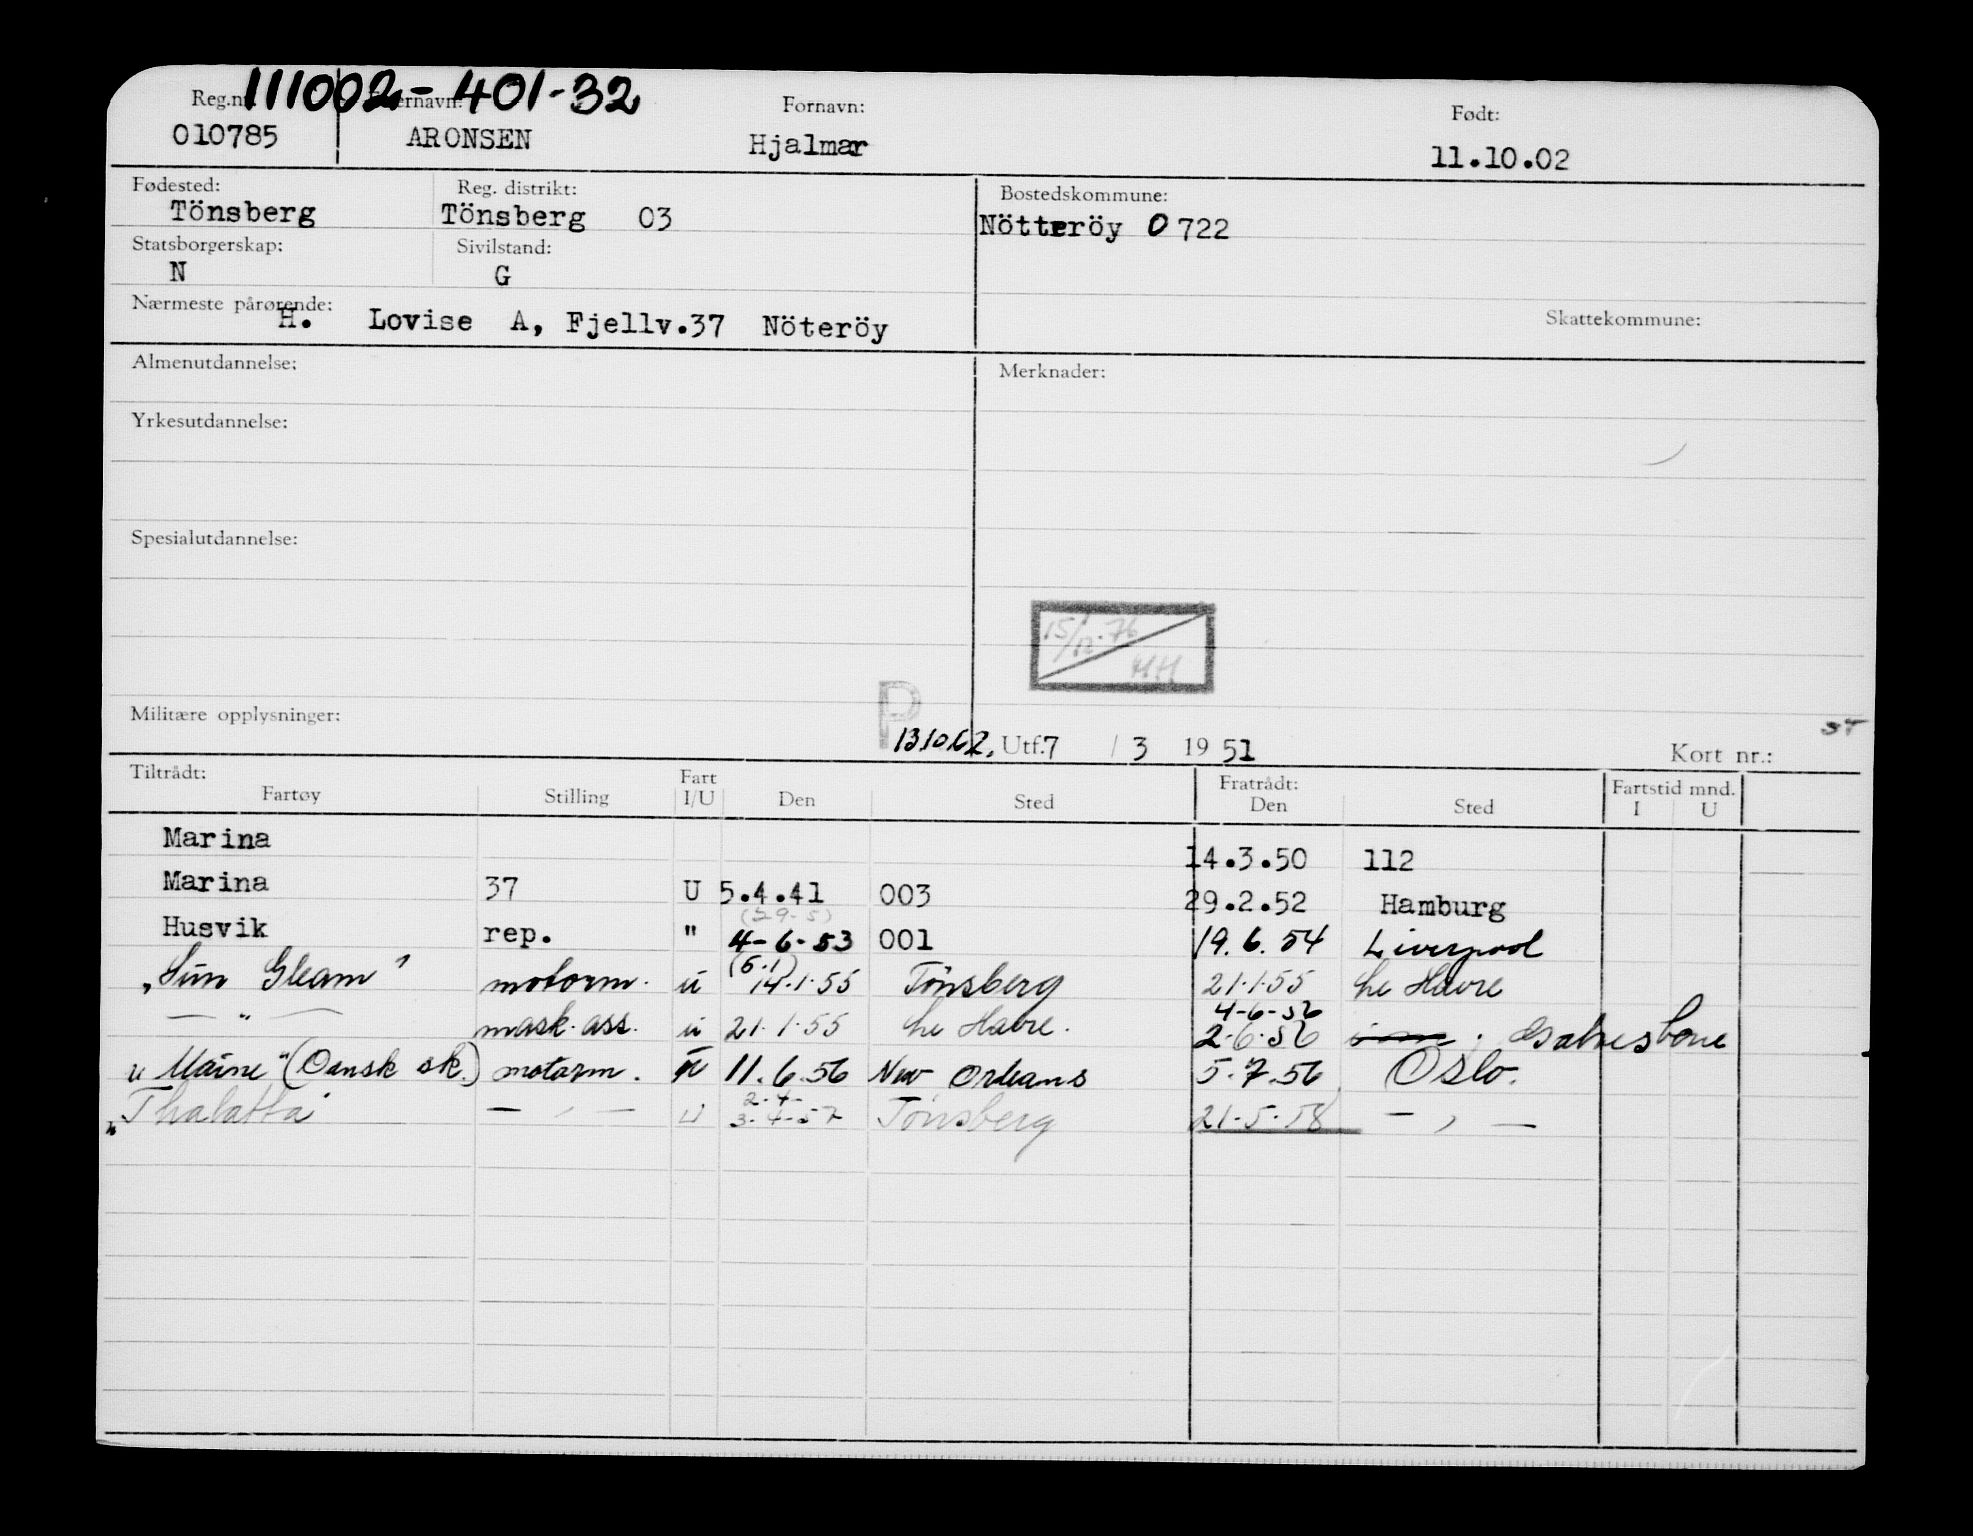 111002-401-32
Reg.nr. Etternavn: Fornavn: Født:
010785 ARONSEN Hjalmar 11.10.02
Fødested: Reg. distrikt: Bostedskommune:
Tönsberg Tönsberg 03 Nötteröy 0722
Statsborgerskap: Sivilstand:
N G
Nærmeste pårørende: Skattekommune:
H. Lovise A, Fjellv.37 Nöteröy
Almenutdannelse: Merknader:
Yrkesutdannelse:
Spesialutdannelse:
15/12-76
HH
Militære opplysninger:
P
131062. Utf. 7 / 3 19 51 Kort nr.: ST
Tiltrådt: Fart Fratrådt: Fartstid mnd.
Fartøy Stilling I/U Den Sted Den Sted I U
Marina 14.3.50 112
Marina 37 U 5.4.41 003 29.2.52 Hamburg
(29-5)
Husvik rep. " 4-6-53 001 19.6.54 Liverpool
(5.1)
"Sun Gleam" motorm. u 14.1.55 Tönsberg 21.1.55 Le Havre
4-6-56
— " — mask.ass. u 21.1.55 Le Havre. 2-6-56 . Galvesbone
"Maine" (Dansk sk.) motorm. U 11.6.56 New Orleans 5.7.56 Oslo.
2-4-
"Thalatta" — " — U 3-4-57 Tönsberg 21-5-58 — " —